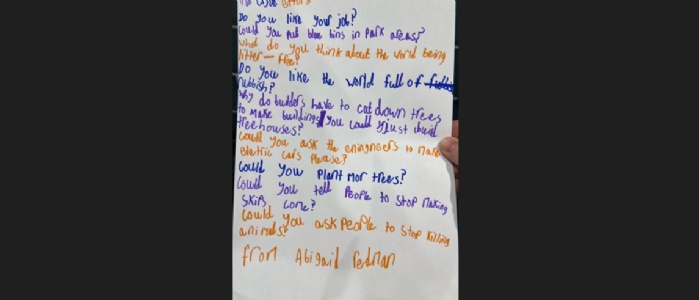 Do you like your job?
Could you put blue bins in park areas?
what do you think about the world being
litter-free?
Do you like the world full of
rubbish?
Why do builders have to cat down trees
to make buildings you could just build
treehouses?
Could you ask the eningneers to make
eletric cars please?
Could you plant mor trees?
Could you tell people to stop making
skips come?
Could you ask people to stop killing
animals?
from Abigail